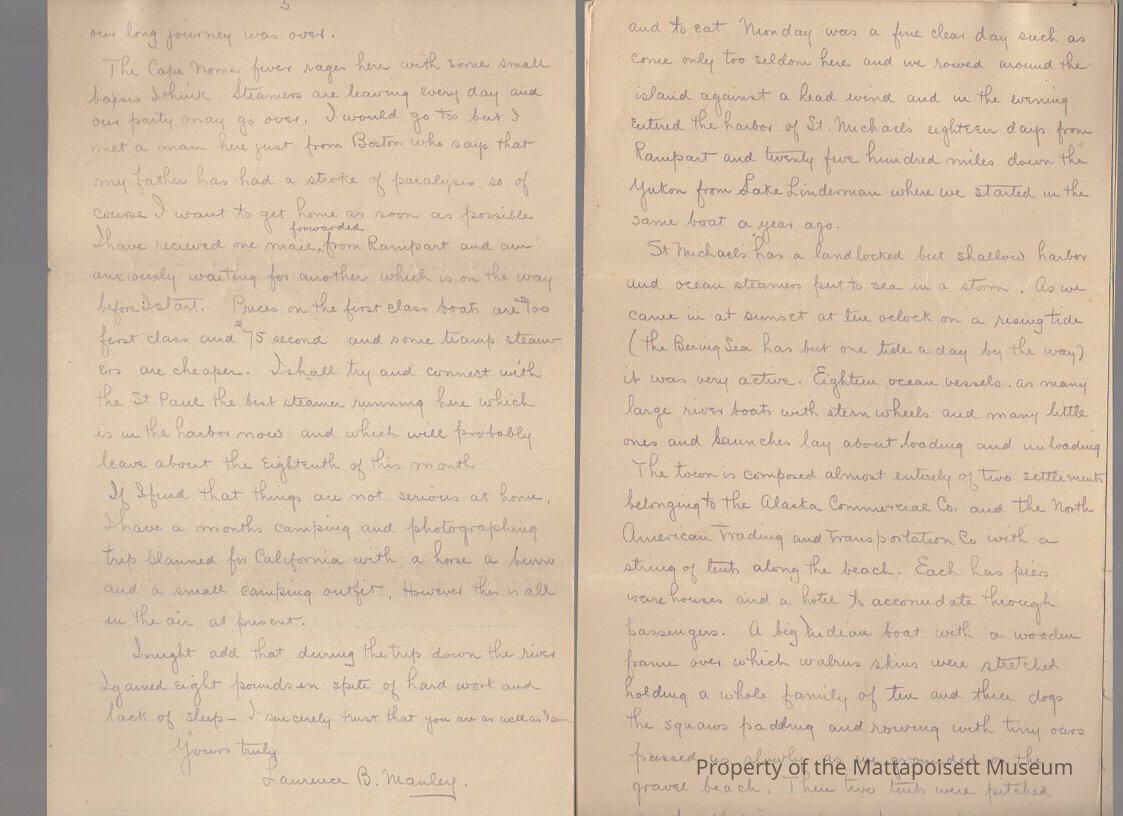 5
our long journey was over.
The Cape Nome fever rages here with some small
basis I think. Steamers are leaving every day and
our party may go over. I would go too but I
met a man here just from Boston who says that
my father has had a stroke of paralysis so of
course I want to get home as soon as possible
forwarded
I have recieved one mail from Rampart and am
anxiously waiting for another which is on the way
before I start. Prices on the first class boats are $100
first class and $75 second and some tramp steam-
ers are cheaper. I shall try and connect with
the St. Paul the best steamer running here which
is in the harbor now and which will probably
leave about the Eighteenth of this month
If I find that things are not serious at home.
I have a months camping and photographing
trip planned for California with a horse a burro
and a small camping outfit. However this is all
in the air at present.
I might add that during the trip down the river
I gained eight pounds in spite of hard work and
lack of sleep — I sincerely trust that you are as well as I am
Yours truly
Laurence B. Manley.
and to eat. Monday was a fine clear day such as
come only too seldom here and we rowed around the
island against a head wind and in the evening
entered the harbor of St. Michaels eighteen days from
Rampart and twenty five hundred miles down the
Yukon from Lake Linderman where we started in the
same boat a year ago.
St Michaels has a landlocked but shallow harbor
and ocean steamers put to sea in a storm. As we
came in at sunset at ten oclock on a rising tide
(the Bering Sea has but one tide a day by the way)
it was very active. Eighteen ocean vessels, as many
large river boats with stern wheels and many little
ones and launches lay about loading and unloading
The town is composed almost entirely of two settlements
belonging to the Alaska Commercial Co. and the North
American Trading and Transportation Co with a
string of tents along the beach. Each has piers
warehouses and a hotel to accomodate through
passengers. A big Indian boat with a wooden
frame over which walrus skins were stretched
holding a whole family of ten and three dogs
the squaws paddling and rowing with tiny oars
passed us slowly as we grounded on the
gravel beach. Then two tents were pitched
Property of the Mattapoisett Museum